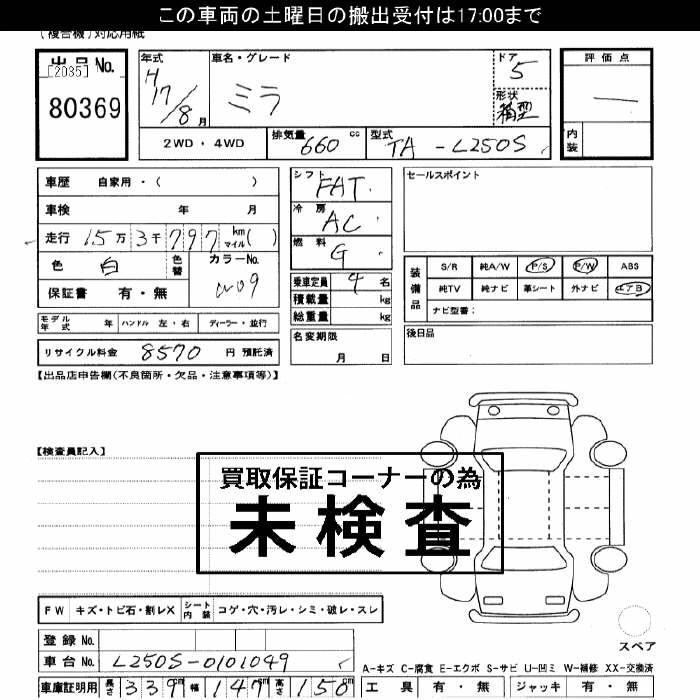 この車両の土曜日の搬出受付は17:00まで
(複合機)対応用紙
出品No. [2035] 80369
年式 H17/8月
車名・グレード ミラ
ドア 5
形状 箱型
評価点 —
内装
2WD・4WD 排気量 660 cc 型式 TA-L250S
車歴 自家用・( )
車検 年 月
走行 15万3千797 km マイル( )
色 白 色替 カラーNo. W09
保証書 有・無
シフト FAT
冷房 AC
燃料 G
乗車定員 4名
積載量 kg
総重量 kg
名変期限 月 日
セールスポイント
装備品 S/R 純A/W P/S P/W ABS
純TV 純ナビ 革シート 外ナビ エアB
ナビ型番:
後日品
モデル年式 年 ハンドル 左・右 ディーラー・並行
リサイクル料金 8570 円 預託済
【出品店申告欄(不良箇所・欠品・注意事項等)】
【検査員記入】
買取保証コーナーの為
未検査
FW キズ・トビ石・割レX シート内装 コゲ・穴・汚レ・シミ・破レ・スレ
登録No.
車台No. L250S-0101049
車庫証明用 長さ 339cm 幅 147cm 高さ 150cm
スペア
A-キズ C-腐食 E-エクボ S-サビ U-凹ミ W-補修 XX-交換済
工具 有・無 ジャッキ 有・無